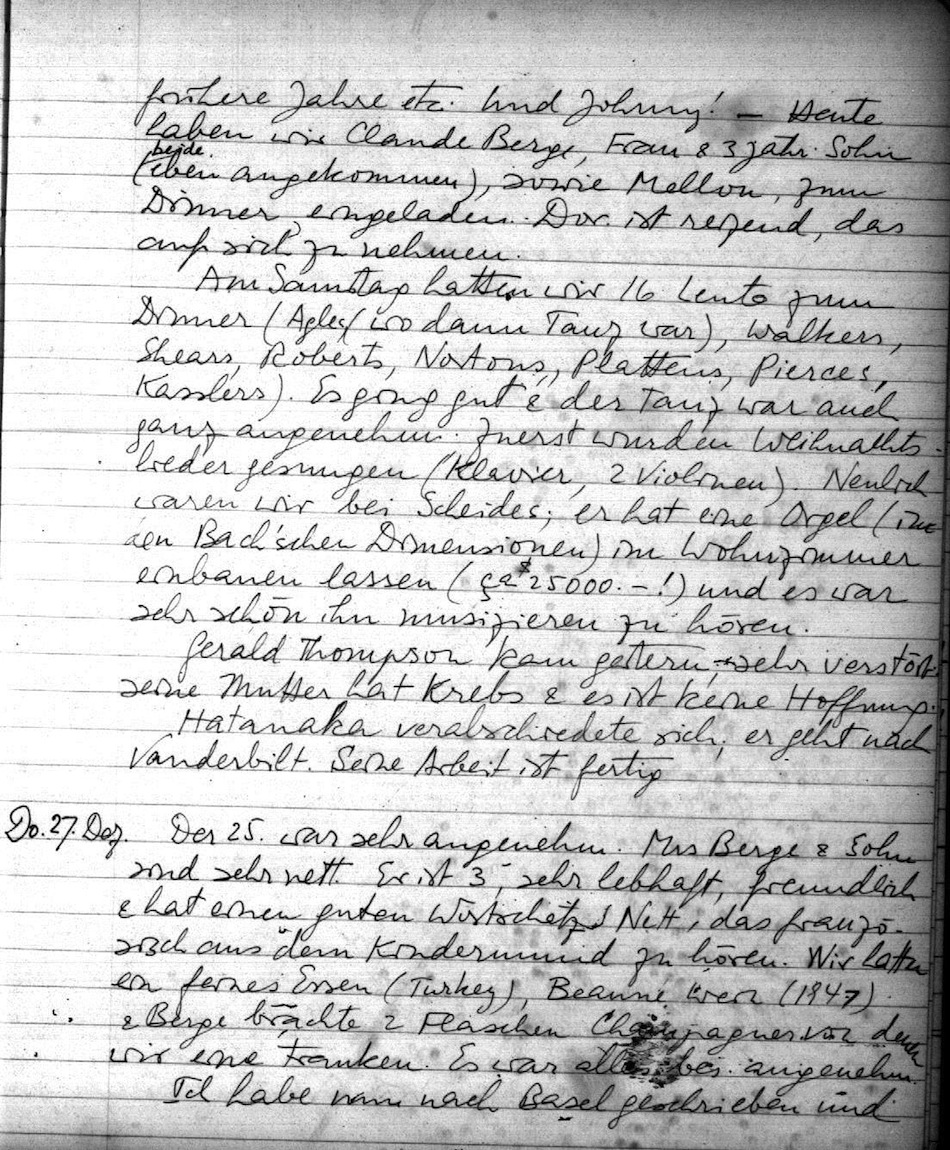 frühere Jahre etc. Und Johnny! — Heute
haben wir Claude Berge, Frau & 3 jähr. Sohn
beide
(eben angekommen), sowie Mellon, zum
Dinner eingeladen. Dor. ist reizend, das
auf sich zu nehmen.
Am Samstag hatten wir 16 Leute zum
Dinner (wo dann Tanz war), Walkers,
Shears, Roberts, Nortons, Plattens, Pierces,
Kasslers). Es ging gut & der Tanz war auch
ganz angenehm. Zuerst wurden Weihnachts-
lieder gesungen (Klavier, 2 Violinen). Neulich
waren wir bei Scheides; er hat eine Orgel (in
den Bach'schen Dimensionen) im Wohnzimmer
einbauen lassen (ça $25000.-!) und es war
sehr schön ihn musizieren zu hören.
Gerald Thompson kam gestern, sehr verstört.
seine Mutter hat Krebs & es ist keine Hoffnung.
Hatanaka verabschiedete sich, er geht nach
Vanderbilt. Seine Arbeit ist fertig
Do. 27. Dez. Der 25. war sehr angenehm. Mrs Berge & Sohn
sind sehr nett. Er ist 3, sehr lebhaft, freundlich
& hat einen guten Wortschatz! Nett, das franzö-
sisch aus dem Kindermund zu hören. Wir hatten
ein feines Essen (Turkey), Beaune Wein (1947)
& Berge brachte 2 Flaschen Champagner von denen
wir eine tranken. Es war alles bes. angenehm.
Ich habe nun nach Basel geschrieben und